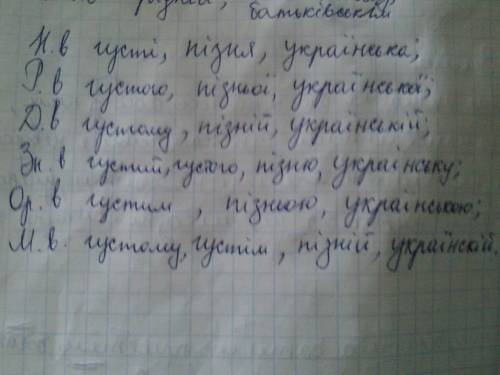 різній,
батьківським
Н.в густі, пізня, українська;
Р.в густого, пізньої, української;
Д.в густому, пізній, українській;
Зн.в густий, густого, пізню, українську;
Ор.в густим, пізньою, українською;
М.в. густому, густім, пізній, українскій.